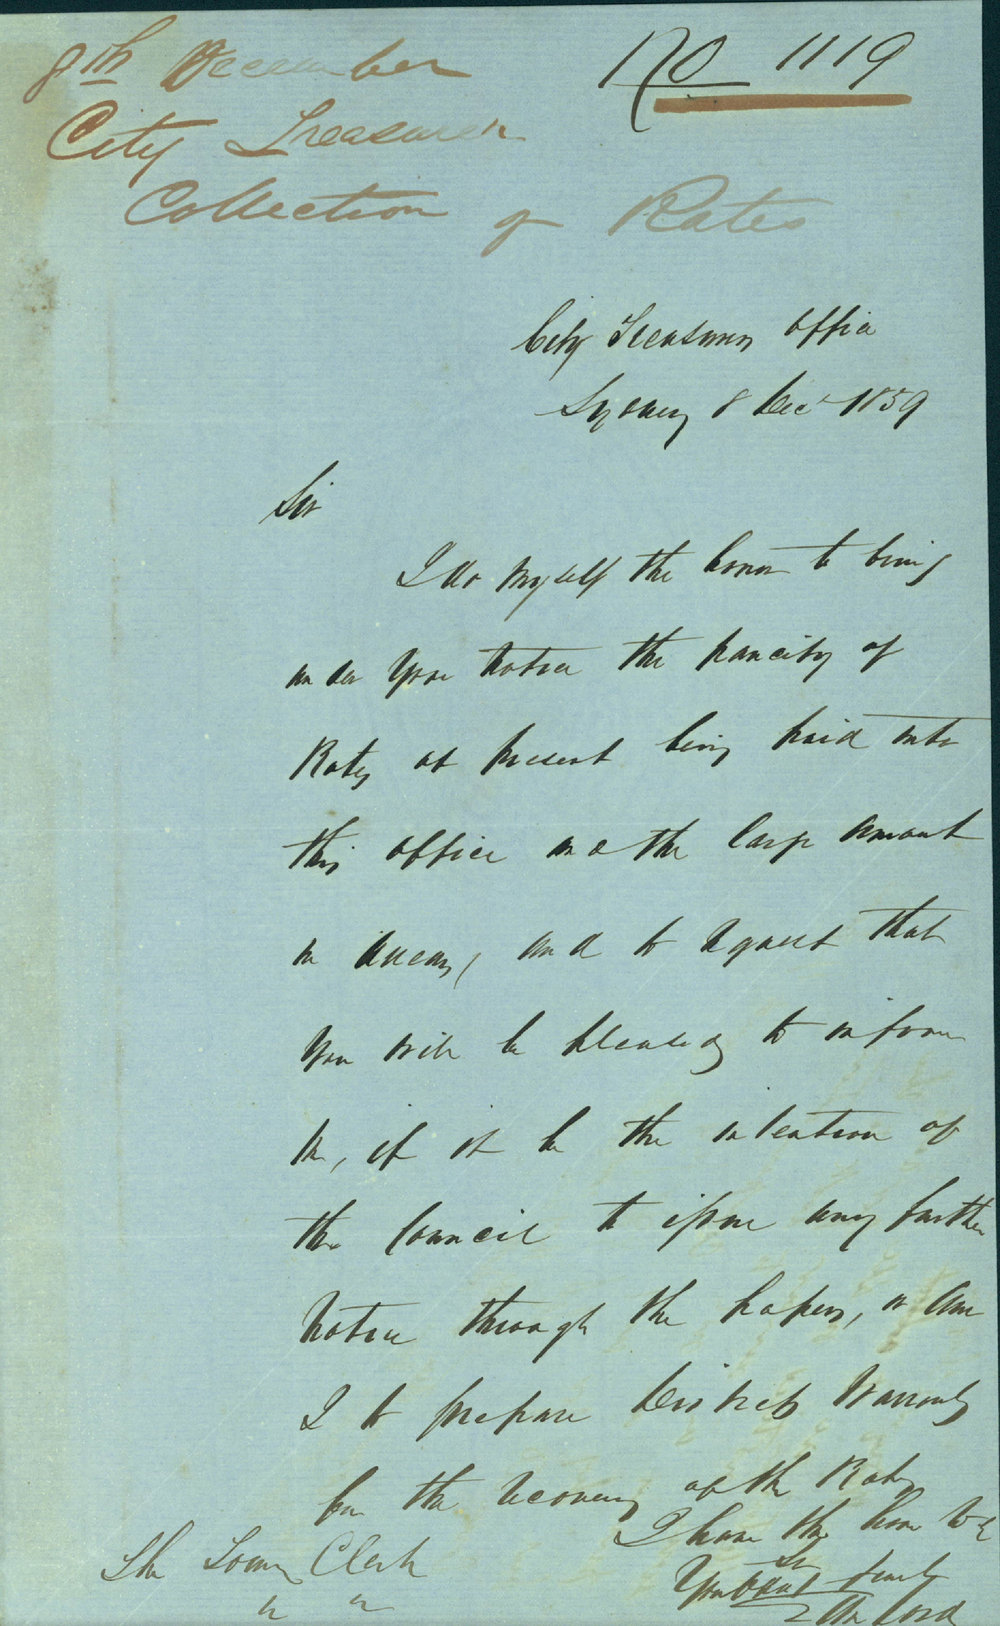 8th December No 1119
City Treasurer
Collection of Rates
City Treasurers Office
Sydney 8 Dec 1859
Sir
I do myself the honor to bring
under your notice the paucity of
Rates at present being paid into
this office and the large amount
in arrears, and to request that
you will be pleased to inform
me, if it be the intention of
the Council to issue any further
notice through the papers, or am
I to prepare Distress Warrants
for the recovery of the Rates
I have the honor to be
Sir
Your obdt Servt
The Town Clerk
" "